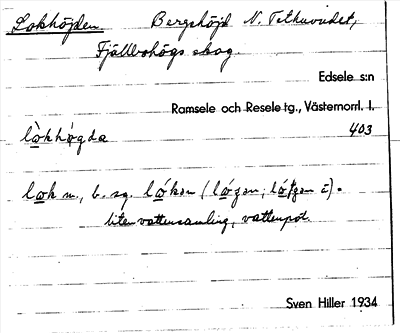 Lokhöjden Bergshöjd N. Tethuvudet,
Fjällbohögs skog.
Edsele s:n
Ramsele och Resele tg., Västernorrl. l.
403
lòkhøgda
lok m., b. sg. lókɘn
liten vattensamling, vattenpöl.
Sven Hiller 1934